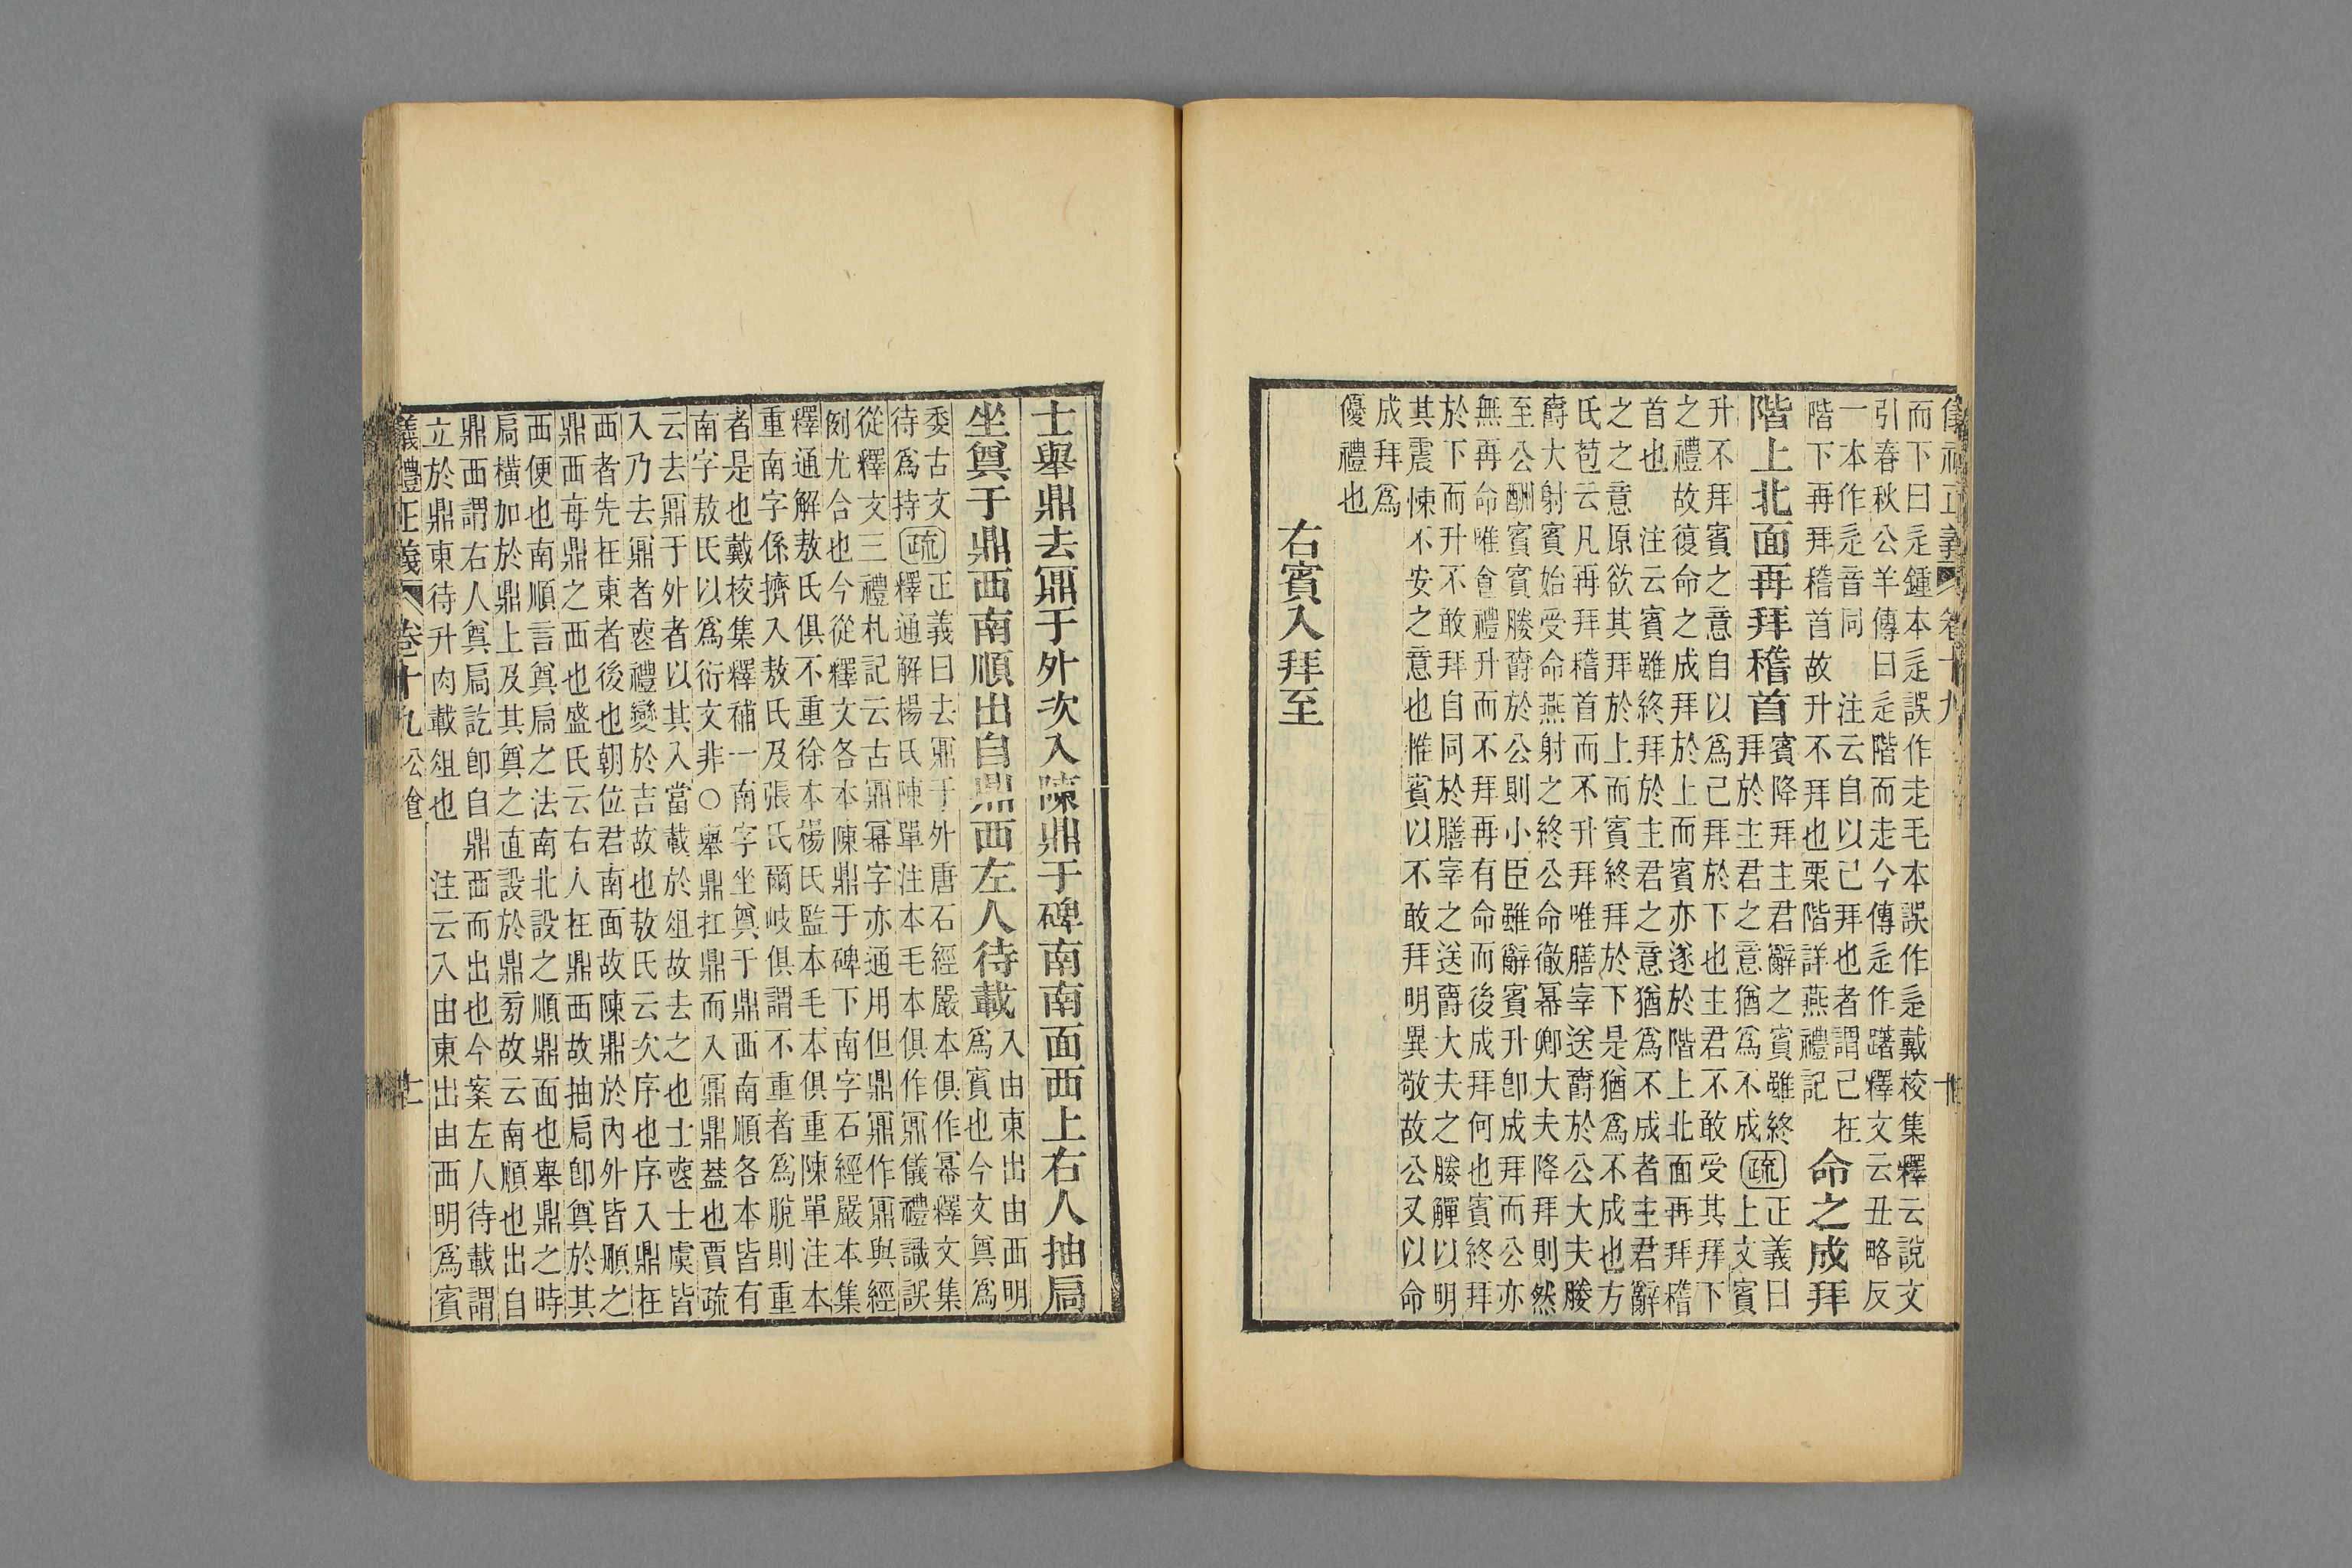 儀禮正義 卷十九
而下曰辵鍾本辵誤作走毛本誤作辵戴校集釋云說文
引春秋公羊傳曰辵階而走今傳辵作躇釋文云丑略反
一本作辵音同 注云自以己拜也者謂己在
階下再拜稽首故升不拜也栗階詳燕禮記
命之成拜
階上北面再拜稽首
賓降拜主君辭之賓雖終
拜於主君之意猶爲不成
疏 正義曰
上文賓
升不拜賓之意自以爲己拜於下也主君不敢受其拜下
之禮故復命之成拜於上而賓亦遂於階上北面再拜稽
首也 注云賓雖終拜於主君之意猶爲不成者主君辭
之之意原欲其拜於上而賓終拜於下是猶爲不成也方
氏苞云凡再拜稽首而不升拜唯膳宰送爵於公大夫媵
爵大射賓始受命燕射之終公命徹幂卿大夫降拜則然
至公酬賓賓媵爵於公則小臣雖辭賓升卽成拜而公亦
無再命唯食禮升而不拜再有命而後成拜何也賓終拜
於下而升不敢拜自同於膳宰之送爵大夫之媵觶以明
其震悚不安之意也惟賓以不敢拜明異敬故公又以命
成拜爲
優禮也
右賓入拜至
士舉鼎去鼏于外次入陳鼎于碑南南面西上右人抽扃
坐奠于鼎西南順出自鼎西左人待載
入由東出由西明
爲賓也今文奠爲
委古文
待爲持
疏
正義曰去鼏于外唐石經嚴本俱作幂釋文集
釋通解楊氏陳單注本毛本俱作鼏儀禮識誤
從釋文三禮札記云古鼏幂字亦通用但鼎鼏作鼏與經
例尤合也今從釋文各本陳鼎于碑下南字石經嚴本集
釋通解敖氏俱不重徐本楊氏監本毛本俱重陳單注本
重南字係擠入敖氏及張氏爾岐俱謂不重者爲脫則重
者是也戴校集釋補一南字坐奠于鼎西南順各本皆有
南字敖氏以爲衍文非○舉鼎扛鼎而入鼏鼎蓋也賈疏
云去鼏于外者以其入當載於俎故去之也士喪士虞皆
入乃去鼏者喪禮變於吉故也敖氏云次序也序入鼎在
西者先在東者後也朝位君南面故陳鼎於內外皆順之
鼎西每鼎之西也盛氏云右人在鼎西故抽扃卽奠於其
西便也南順言奠扃之法南北設之順鼎面也舉鼎之時
扃橫加於鼎上及其奠之直設於鼎旁故云南順也出自
鼎西謂右人奠扃訖卽自鼎西而出也今案左人待載謂
立於鼎東待升肉載俎也 注云入由東出由西明爲賓
儀禮正義 卷十九 公食